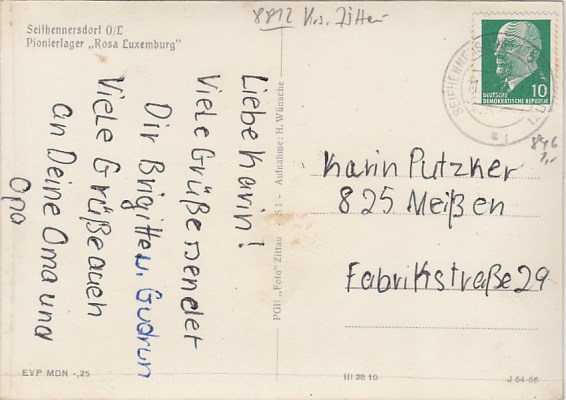 8812 Krs. Zittau
Seifhennersdorf O/L
Pionierlager „Rosa Luxemburg"
Liebe Karin!
Viele Grüße sendet
Dir Brigitte u. Gudrun
Viele Grüße auch
an Deine Oma und
Opa
PGH „Foto" Zittau
S 1 - Aufnahme: H. Wünsche
10
DEUTSCHE
DEMOKRATISCHE REPUBLIK
846
1,-
Karin Putzker
825 Meißen
Fabrikstraße 29
EVP MDN -,25
III 28 10
J 64-66